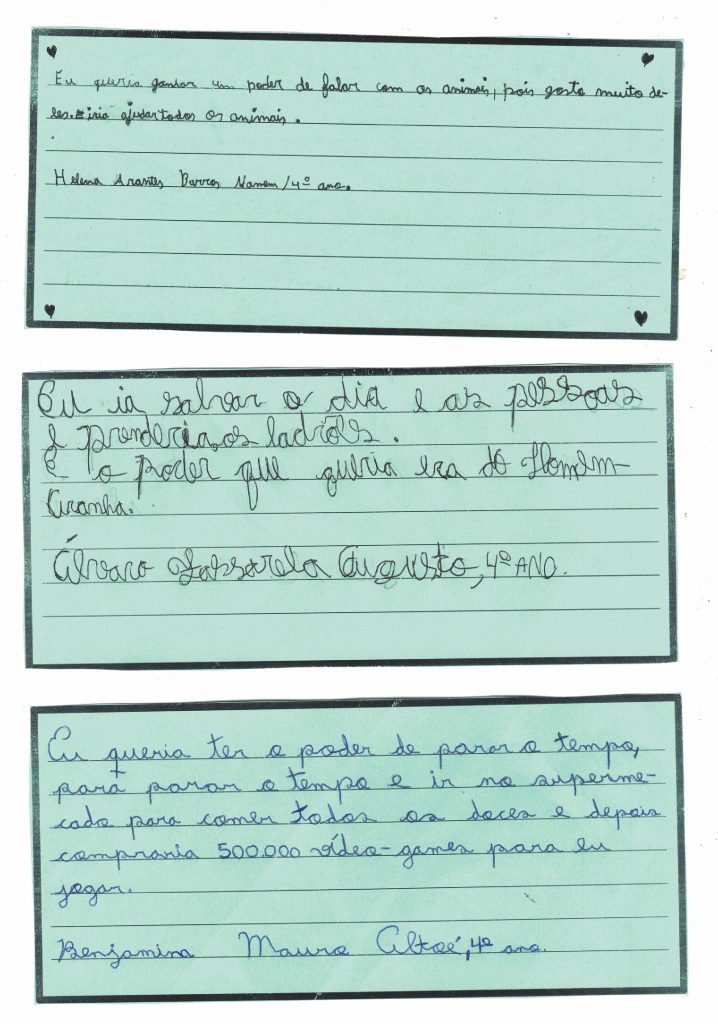 Eu queria ganhar um poder de falar com os animais, pois gosto muito de-
les. E iria ajudar todos os animais.
Helena Arantes Barros Namem/4º ano.
Eu ia salvar o dia e as pessoas
e prenderia os ladrões.
E o poder que queria era do Homem-
Aranha.
Álvaro Augusto, 4º ANO.
Eu queria ter o poder de parar o tempo,
para parar o tempo e ir no superme-
cado para comer todos os doces e depois
compraria 500.000 vídeo-games para eu
jogar.
Benjamina Mauro Altoé, 4º ano.